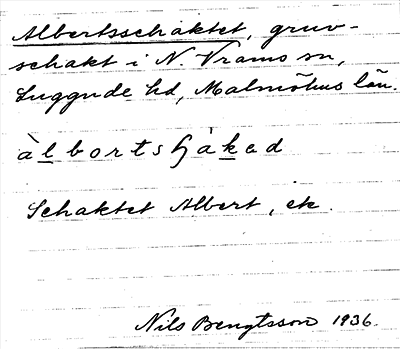 Albertsschaktet, gruv-
schakt i N. Vrams sn,
Luggude hd, Malmöhus län.
àlbortsɧàkəd
Schaktet Albert, ek.
Nils Bengtsson 1936.